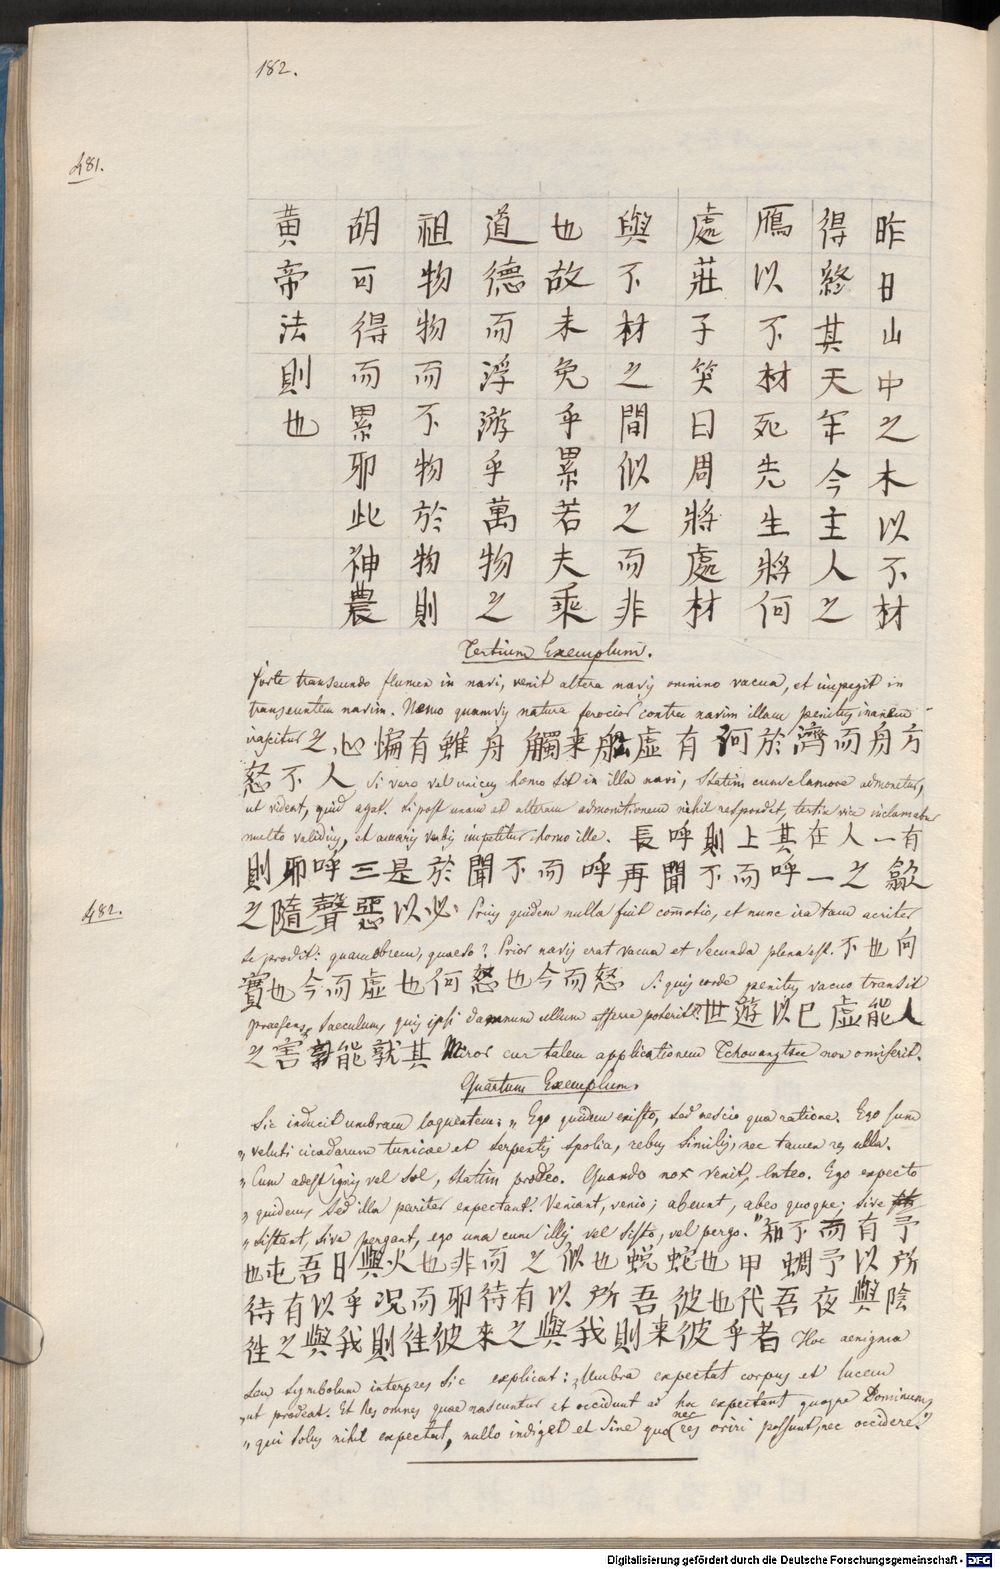 182.
481.
昨日山中之木以不材
得終其天年今主人之
鴈以不材死先生將何
處莊子笑曰周將處材
與不材之間似之而非
也故未免乎累若夫乘
道德而浮游乎萬物之
祖物物而不物於物則
胡可得而累耶此神農
黃帝法則也
Tertium Exemplum.
forte transeundo flumen in navi, venit altera navis omnino vacua, et impegit in
transeuntem navim. Nemo quamvis natura ferocior contra navim illam penitus inanem
irascitur 之心惼有雖舟觸来舩虛有河於濟而舟方
怒不人 Si vero vel unicus homo sit in illa navi, statim cum clamore admonetur,
ut videat, quid agat. Si post unam et alteram admonitionem nihil respondit, tertia vice inclamatur
multo validius, et amaris verbis impetitur homo ille. 長呼則上其在人一有
則耶呼三是於聞不而呼再聞不而呼一之歙
482.
之隨聲惡以必 Prius quidem nulla fuit com̄otio, et nunc ira tam acriter
se prodit: quamobrem, quaeso? Prior navis erat vacua et secunda plena est. 不也向
實也今而虛也何怒也今而怒 Si quis corde penitus vacuo transit
praesens saeculum, quis ipsi damnum ullum afferre poterit? 世遊以已虛能人
之害能孰其 Miror cur talem applicationem Tchouangtsee non omiserit.
Quartum Exemplum.
Sic inducit umbram loquentem: „Ego quidem existo, sed nescio qua ratione. Ego sum
„veluti cicadarum tunicae et serpentis spolia, rebus similis, nec tamen res ulla.
„Cum adest ignis vel sol, statim prodeo. Quando nox venit, lateo. Ego expecto
„quidem, sed illa pariter expectant. Veniant, venio; abeunt, abeo quoque; sive
„sistant, sive pergant, ego una cum illis vel sisto, vel pergo." 知不而有予
也屯吾日與火也非而之似也蛻蛇也甲蜩予以所
待有以乎况而耶待有以所吾彼也代吾夜與陰
徃之與我則徃彼來之與我則来彼乎者 Hoc aenigma
seu symbolum interpres sic explicat: „Umbra expectat corpus et lucem
„ut prodeat. Et Res omnes quae nascuntur et occidunt ad hac expectant quoque Dominum,
„qui solus nihil expectat, nullo indiget et sine quo nec res oriri possunt, nec occidere."
Digitalisierung gefördert durch die Deutsche Forschungsgemeinschaft - DFG